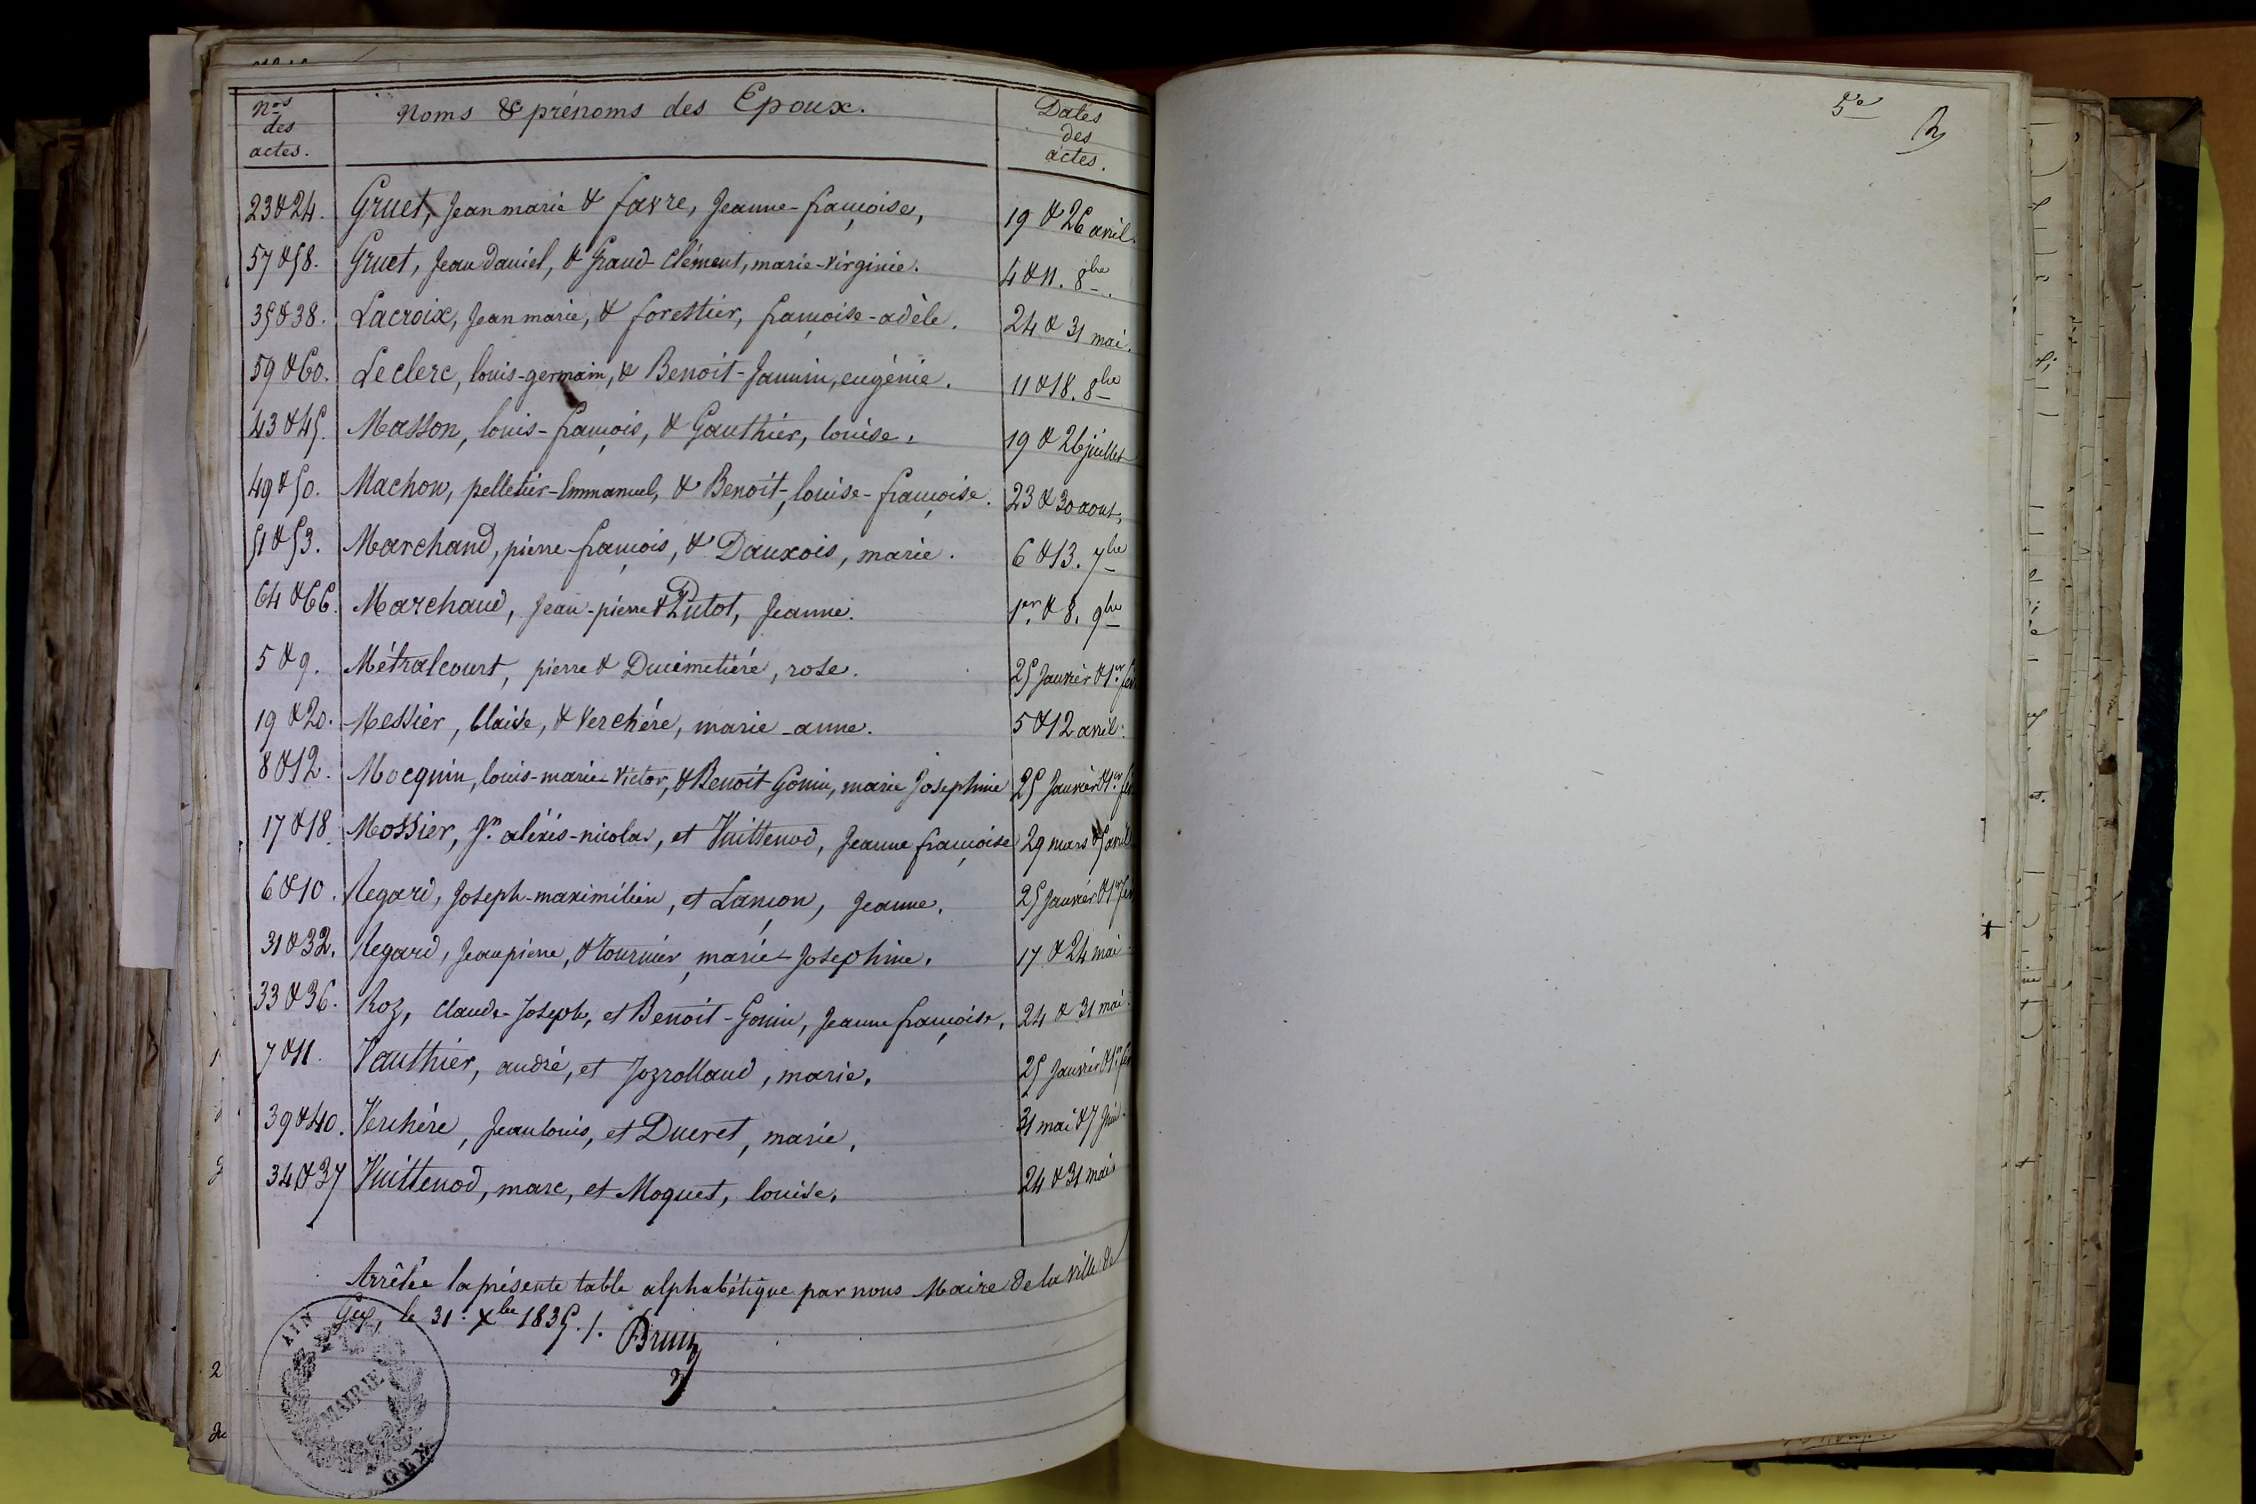 Nos des actes.
Noms & prénoms des Epoux.
Dates des actes.
23 & 24. Gruet, Jean marie & favre, Jeanne-françoise, 19 & 26 avril.
57 & 58. Gruet, Jean daniel, & Grand-Clément, marie-virginie. 4 & 11. 8bre.
35 & 38. Lacroix, Jean marie, & forestier, françoise-adèle. 24 & 31 mai.
59 & 60. Leclerc, louis-germain, & Benoit-Jannin, eugénie. 11 & 18. 8bre
43 & 45. Masson, louis-françois, & Gauthier, louise. 19 & 26 juillet
49 & 50. Machon, pelletier-Emmanuel, & Benoit, louise-françoise. 23 & 30 aout,
51 & 53. Marchand, pierre-françois, & Dauxois, marie. 6 & 13. 7bre
64 & 66. Marchand, Jean-pierre & Putot, Jeanne. 1er & 8. 9bre
5 & 9. Métralcourt, pierre & Ducimetière, rose. 25 Janvier & 1er fev
19 & 20. Messier, blaise, & Verchére, marie-anne. 5 & 12 avril.
8 & 12. Mocquin, louis-marie-Victor, & Benoit Gonin, marie Josephine 25 Janvier & 1er fev
17 & 18. Mossier, Jn aléxis-nicolas, et Vuittenod, Jeanne françoise 29 mars & 5 avril
6 & 10. Regard, Joseph-maximilien, et Lançon, Jeanne. 25 Janvier & 1er fev
31 & 32. Regard, Jean pierre, & tournier, marie-Josephine. 17 & 24 mai
33 & 36. Roz, Claude-Joseph, et Benoit-Gonin, Jeanne françoise, 24 & 31 mai.
7 & 11. Vauthier, andré, et Jozrolland, marie. 25 Janvier & 1er fev
39 & 40. Verchére, Jean louis, et Ducret, marie, 31 mai & 7 Juin
34 & 37 Vuittenod, marc, et Moquet, louise. 24 & 31 mai
Arrêtée la présente table alphabétique par nous Maire de la ville de
Gex, le 31. Xbre 1835./.
AIN
MAIRIE
GEX
5e